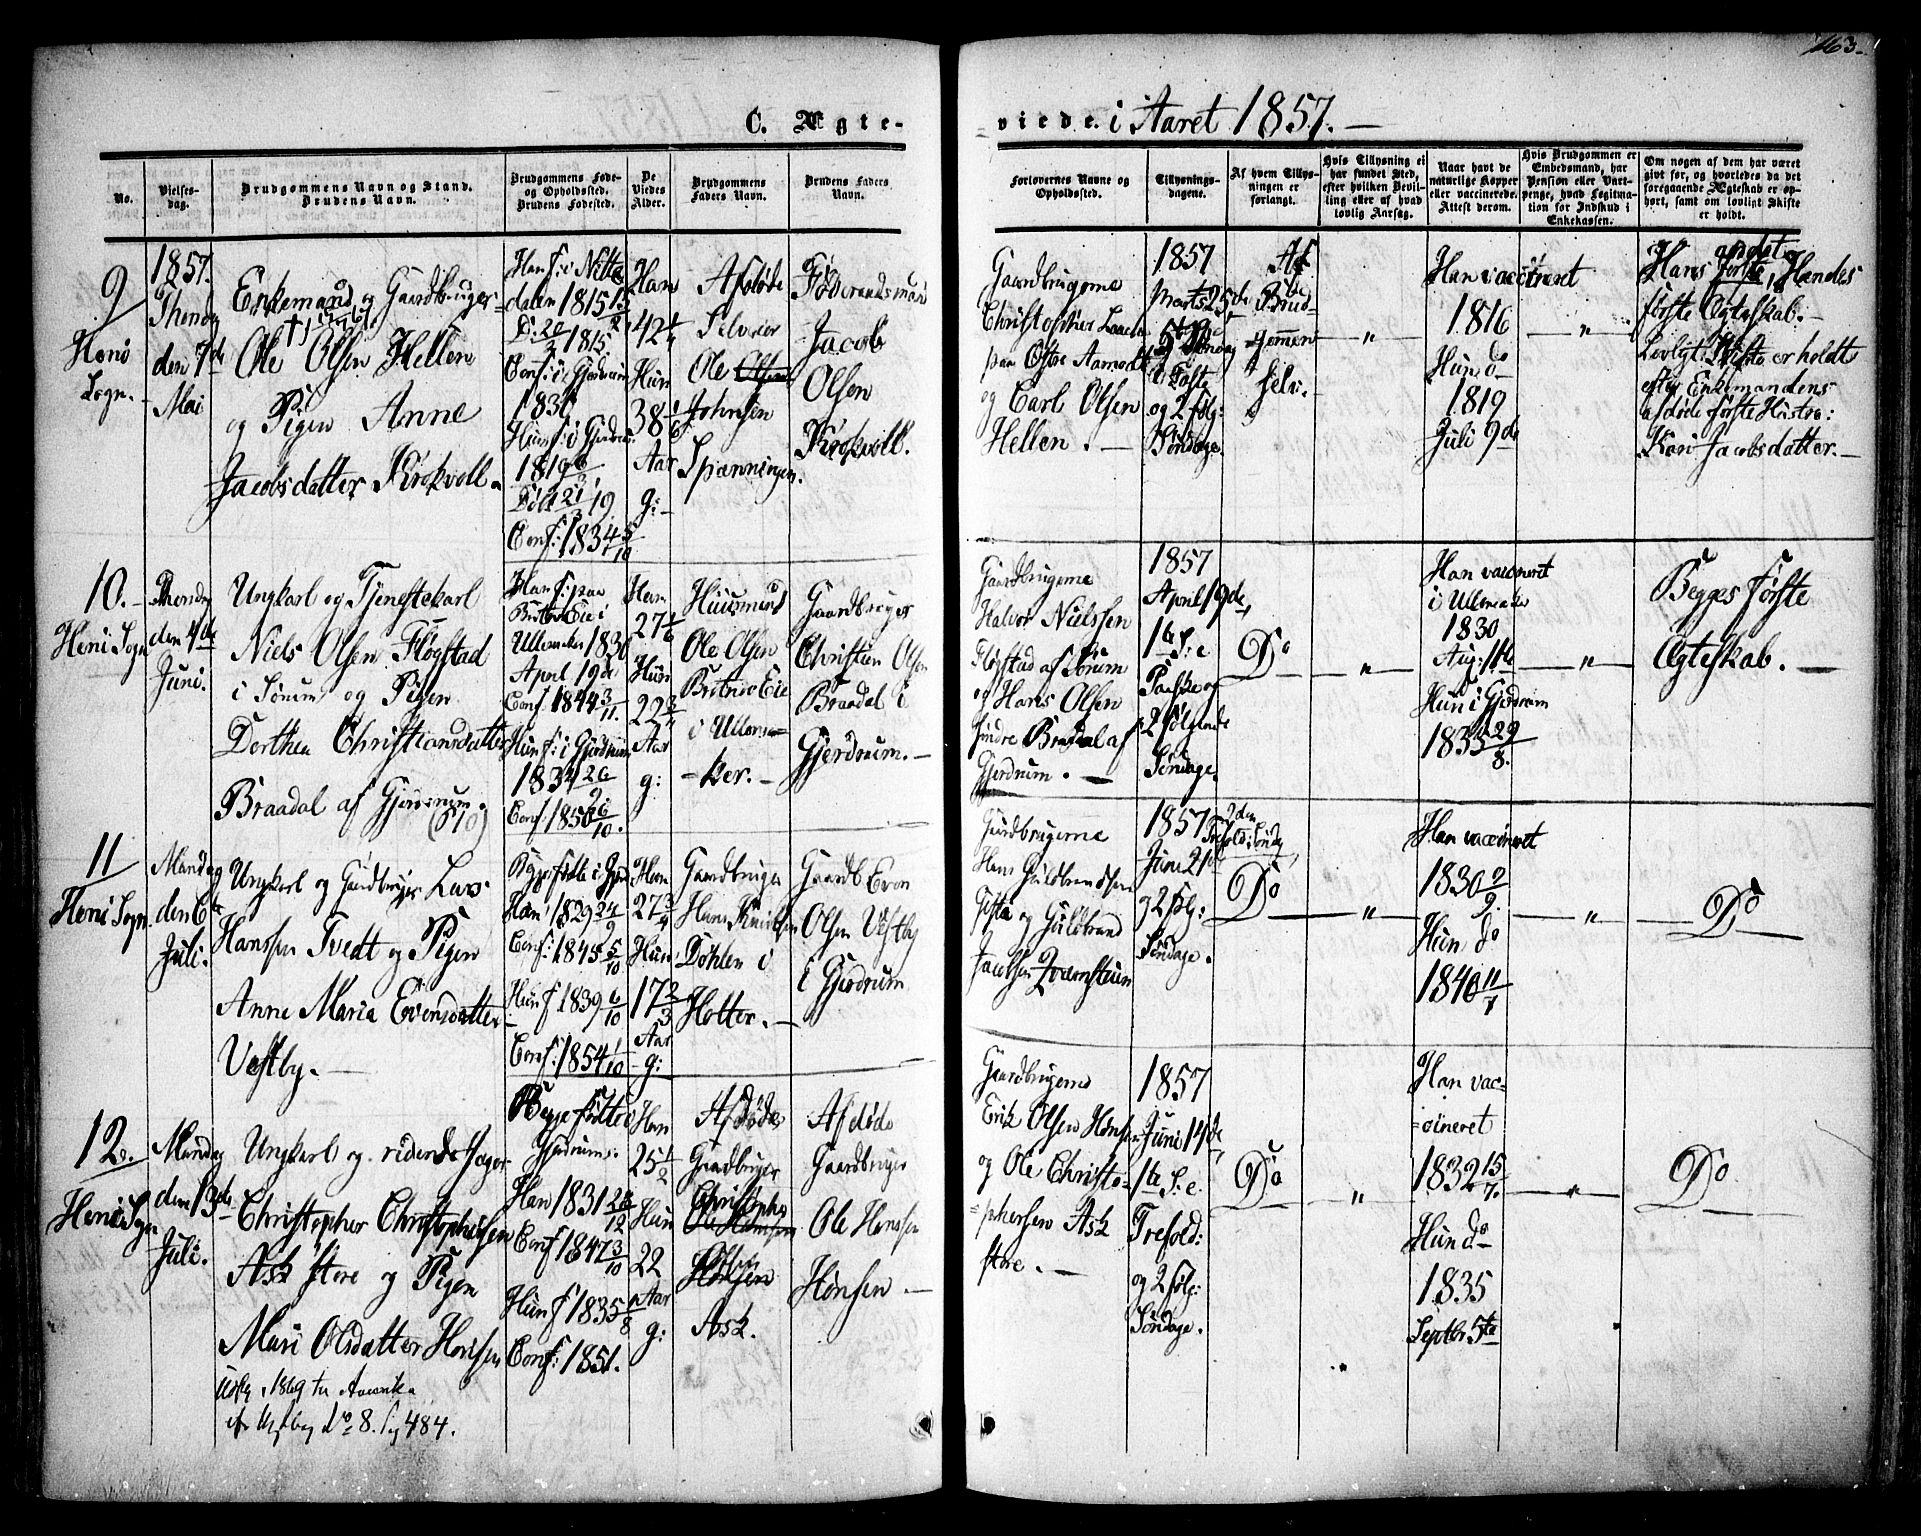 163.
C. Ægte-
viede. i Aaret 1857. —
No.
Vielses-
dag.
Brudgommens Navn og Stand.
Brudens Navn.
Brudgommens Føde-
og Opholdssted.
Brudens Fødested.
De
Viedes
Alder.
Brudgommens
Faders Navn.
Brudens Faders
Navn.
Forlovernes Navne og
Opholdssted.
Tillysnings-
dagene.
Af hvem Tillys-
ningen er
forlangt.
Hvis Tillysning ei
har fundet Sted,
efter hvilken Bevil-
ling eller af hvad
lovlig Aarsag.
Naar havt de
naturlige Kopper
eller vaccinerede.
Attest derom.
Hvis Brudgommen er
Embedsmand, har
Pension eller Vart-
penge, hvad Legitima-
tion for Indskud i
Enkekassen.
Om nogen af dem har været
gift før, og hvorledes da det
foregaaende Ægteskab er op-
hørt, samt om lovligt Skifte
er holdt.
9
Heni
Sogn.
1857.
den 7de
Mai
Enkemand og Gaardbruger
Ole Olsen Hellen
og Pigen Anne
Jacobsdatter Krokvoll
Han f: i Nitte
dalen 1815
1815
Conf: i Gjerdrum
1830
Hun f: i Gjerdrum
1819
Conf: 1834 5/10
Han
42 1/4
Hun
38 1/6
Aar
g:
Afdøde
Selveier
Ole Olsen
Johnsen
Spænningen.
Føderaadsmand
Jacob
Olsen
Krokvoll.
Gaardbrugerne
Christopher
paa Østre Aamodt
og Carl Olsen
Hellen. —
1857
Marts 25de
Faste
og 2 følg:
Søndage.
Af
Brud-
gommen
selv.
— " —
Han vaccineret
1816
Hun do
1819
Juli 9de
— " —
Hans andet første, Hendes
første Ægteskab. —
Lovligt Skifte er holdt
efter Enkemandens
afdøde første Hustro:
Kari Jacobsdatter. —
10. —
Heni Sogn
den 4de
Juni.
Ungkarl og Tjenestekarl
Niels Olsen Fløgstad
i Sørum og Pigen
Dorthea Christiansdatter
Braadal af Gjerdrum.
(510)
Han f: paa
Eie i
Ullensaker 1830
April 19de
Conf. 1844 3/11.
Hun f: i Gjerdrum
1834 26/9
Conf: 1850 6/10.
Han
27 1/6
Hun
22 3/4
Aar
g:
Huusmand
Ole Olsen
Eie
i Ullensa-
-ker. —
Gaardbruger
Christian Olsen
Braadal i
Gjerdrum. —
Gaardbrugerne
Halvor Nielssen
Fløgstad af Sørum
og Hans Olsen
Braadal af
Gjerdrum. —
1857
April 19de,
1te S: e
Paaske og
2 følgende
Søndage.
Do
— " —
Han vaccineret
i Ullensaker
1830
Aug: 11te
Hun i Gjerdrum
1835 29/8.
— " —
Begges første
Ægteskab. —
11
Heni Sogn.
Mandag
den 6te
Juli.
Ungkarl og Gaardbruger Lars
Hanssen Tvedt og Pigen
Anne Maria Evensdatter
Vestby. —
Begge fødte i Gjer
Han 1829 24/9
Conf: 1845 5/10
Hun f 1839 6/10
Conf: 1854 1/10
Han
27 3/4
Hun
17 2/3
Aar
g:
Gaardbruger
Hans
Døhlen i
Holter. —
Gaardb Even
Olsen Vestby
i Gjerdrum
Gaardbrugerne
Hans Guldbrandsen
og Guldbrand
Jacobsen
1857
Juni 21de
og 2 følg:
Søndage.
2den
Do
— " —
Han vaccineret
1830 2/9.
Hun do
1840 11/7
— " —
Do
12.
Heni Sogn
Mandag
den 13de
Juli.
Ungkarl og ridende Jæger
Christopher Christophersen
Ask store og Pigen
Mari Olsdatter Hønsen
Udfly 1869 til Amerika
No 8. 484.
Begge fødte i
Gjerdrum:
Han 1831 26/12
Conf 1847 3/10
Hun f 1835 /8
Conf: 1851.
Han
25 1/2
Hun
22
Aar
g:
Afdøde
Gaardbruger
Christopher
Ole Hansen
Olsen
Hønsen
Ask.
Afdøde
Gaardbruger
Ole Hanssen
Hønsen —
Gaardbrugerne
Erik Olsen Hønsen
og Ole Christo-
phersen Ask
store. —
1857
Juni 14de,
1te S: e.
Trefold:
og 2 følg:
Søndage.
Do
— " —
Han vac-
cineret
1832 15/7.
Hun do
1835
Septbr 5te
— " —
Do